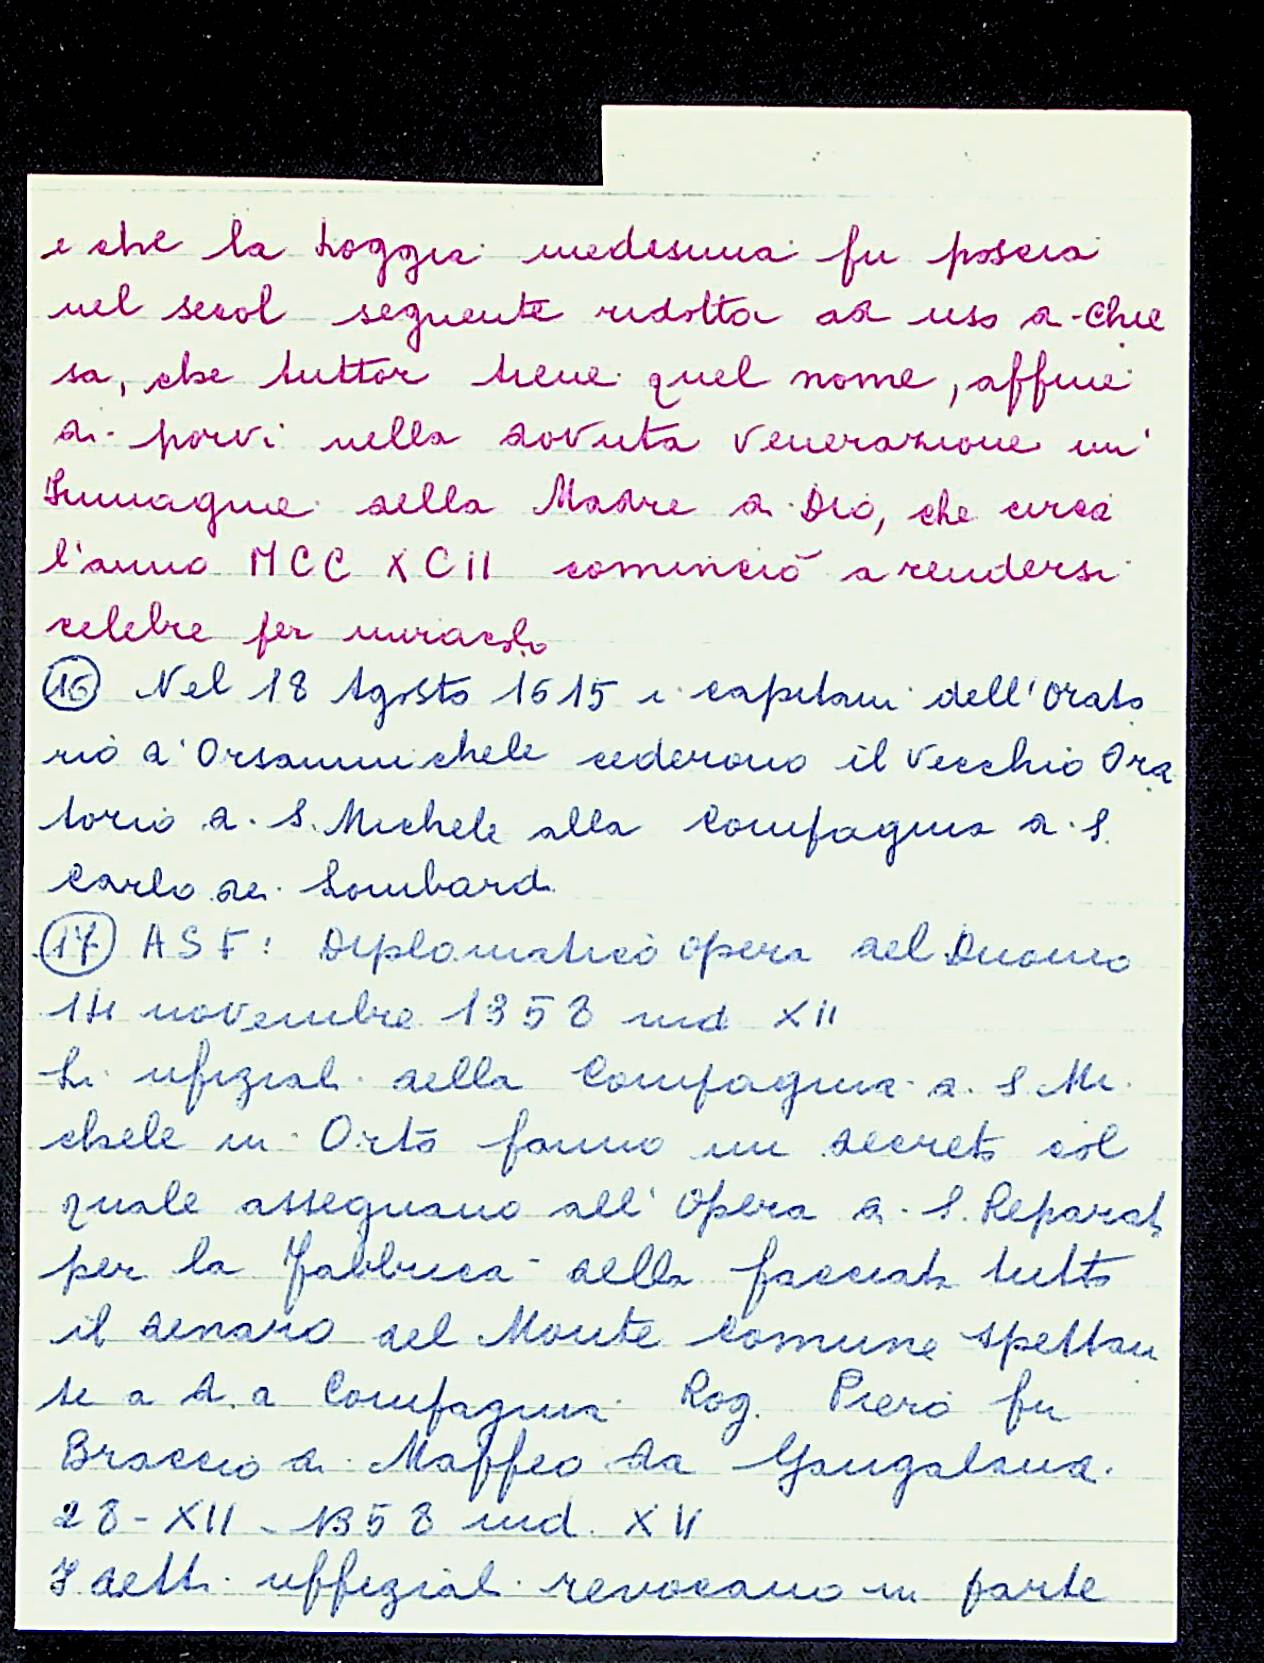 e che la Loggia medesima fu poscia
nel secol seguente ridotta ad uso di Chie
sa, che tuttor tiene quel nome, affine
di porvi nella dovuta venerazione un'
Immagine della Madre di Dio, che circa
l'anno MCCXCII cominciò a rendersi
celebre per miracolo
(16) Nel 18 Agosto 1615 i capitani dell'Orato
rio d'Orsanmichele cederono il vecchio Ora
torio di S. Michele alla Compagnia di S.
Carlo dei Lombardi
(17) ASF: Diplomatico opera del Duomo
14 novembre 1358 ind XII
Li ufiziali della Compagnia di S. Mi
chele in Orto fanno un decreto col
quale assegnano all'Opera di S. Reparata
per la fabbrica della facciata tutto
il denaro del Monte Comune spettan
te a d.a Compagnia Rog. Piero fu
Braccio di Maffeo da
28-XII-1358 ind. XII
I detti uffiziali revocano in parte